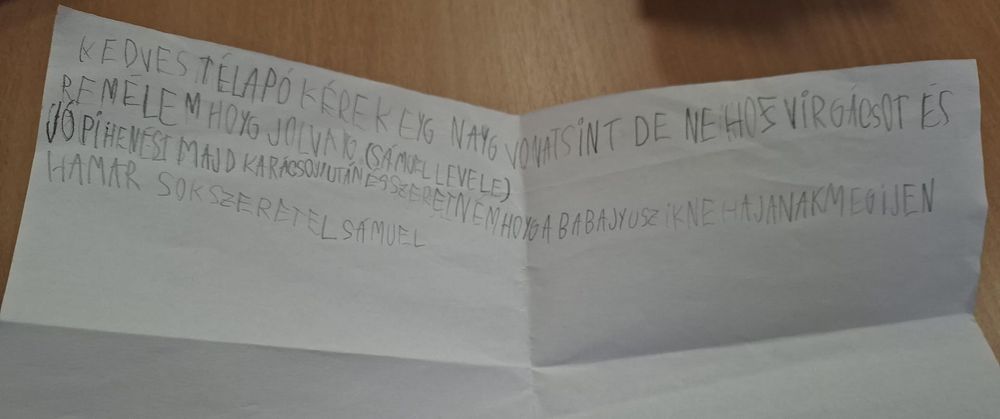 KEDVES TÉLAPÓ KÉREK EYG NAYG VONATSINT DE NE HOZ VIRGÁCSOT ÉS
REMÉLEM HOYG JÓL VAYG (SÁMUEL LEVELE)
JÓ PIHENÉST MAJD KARÁCSOJ UTÁN ÉS SZERETNÉM HOYG A BABAJYUSZIKNE HAJANAK MEG IJEN
HAMAR SOK SZERETEL SÁMUEL